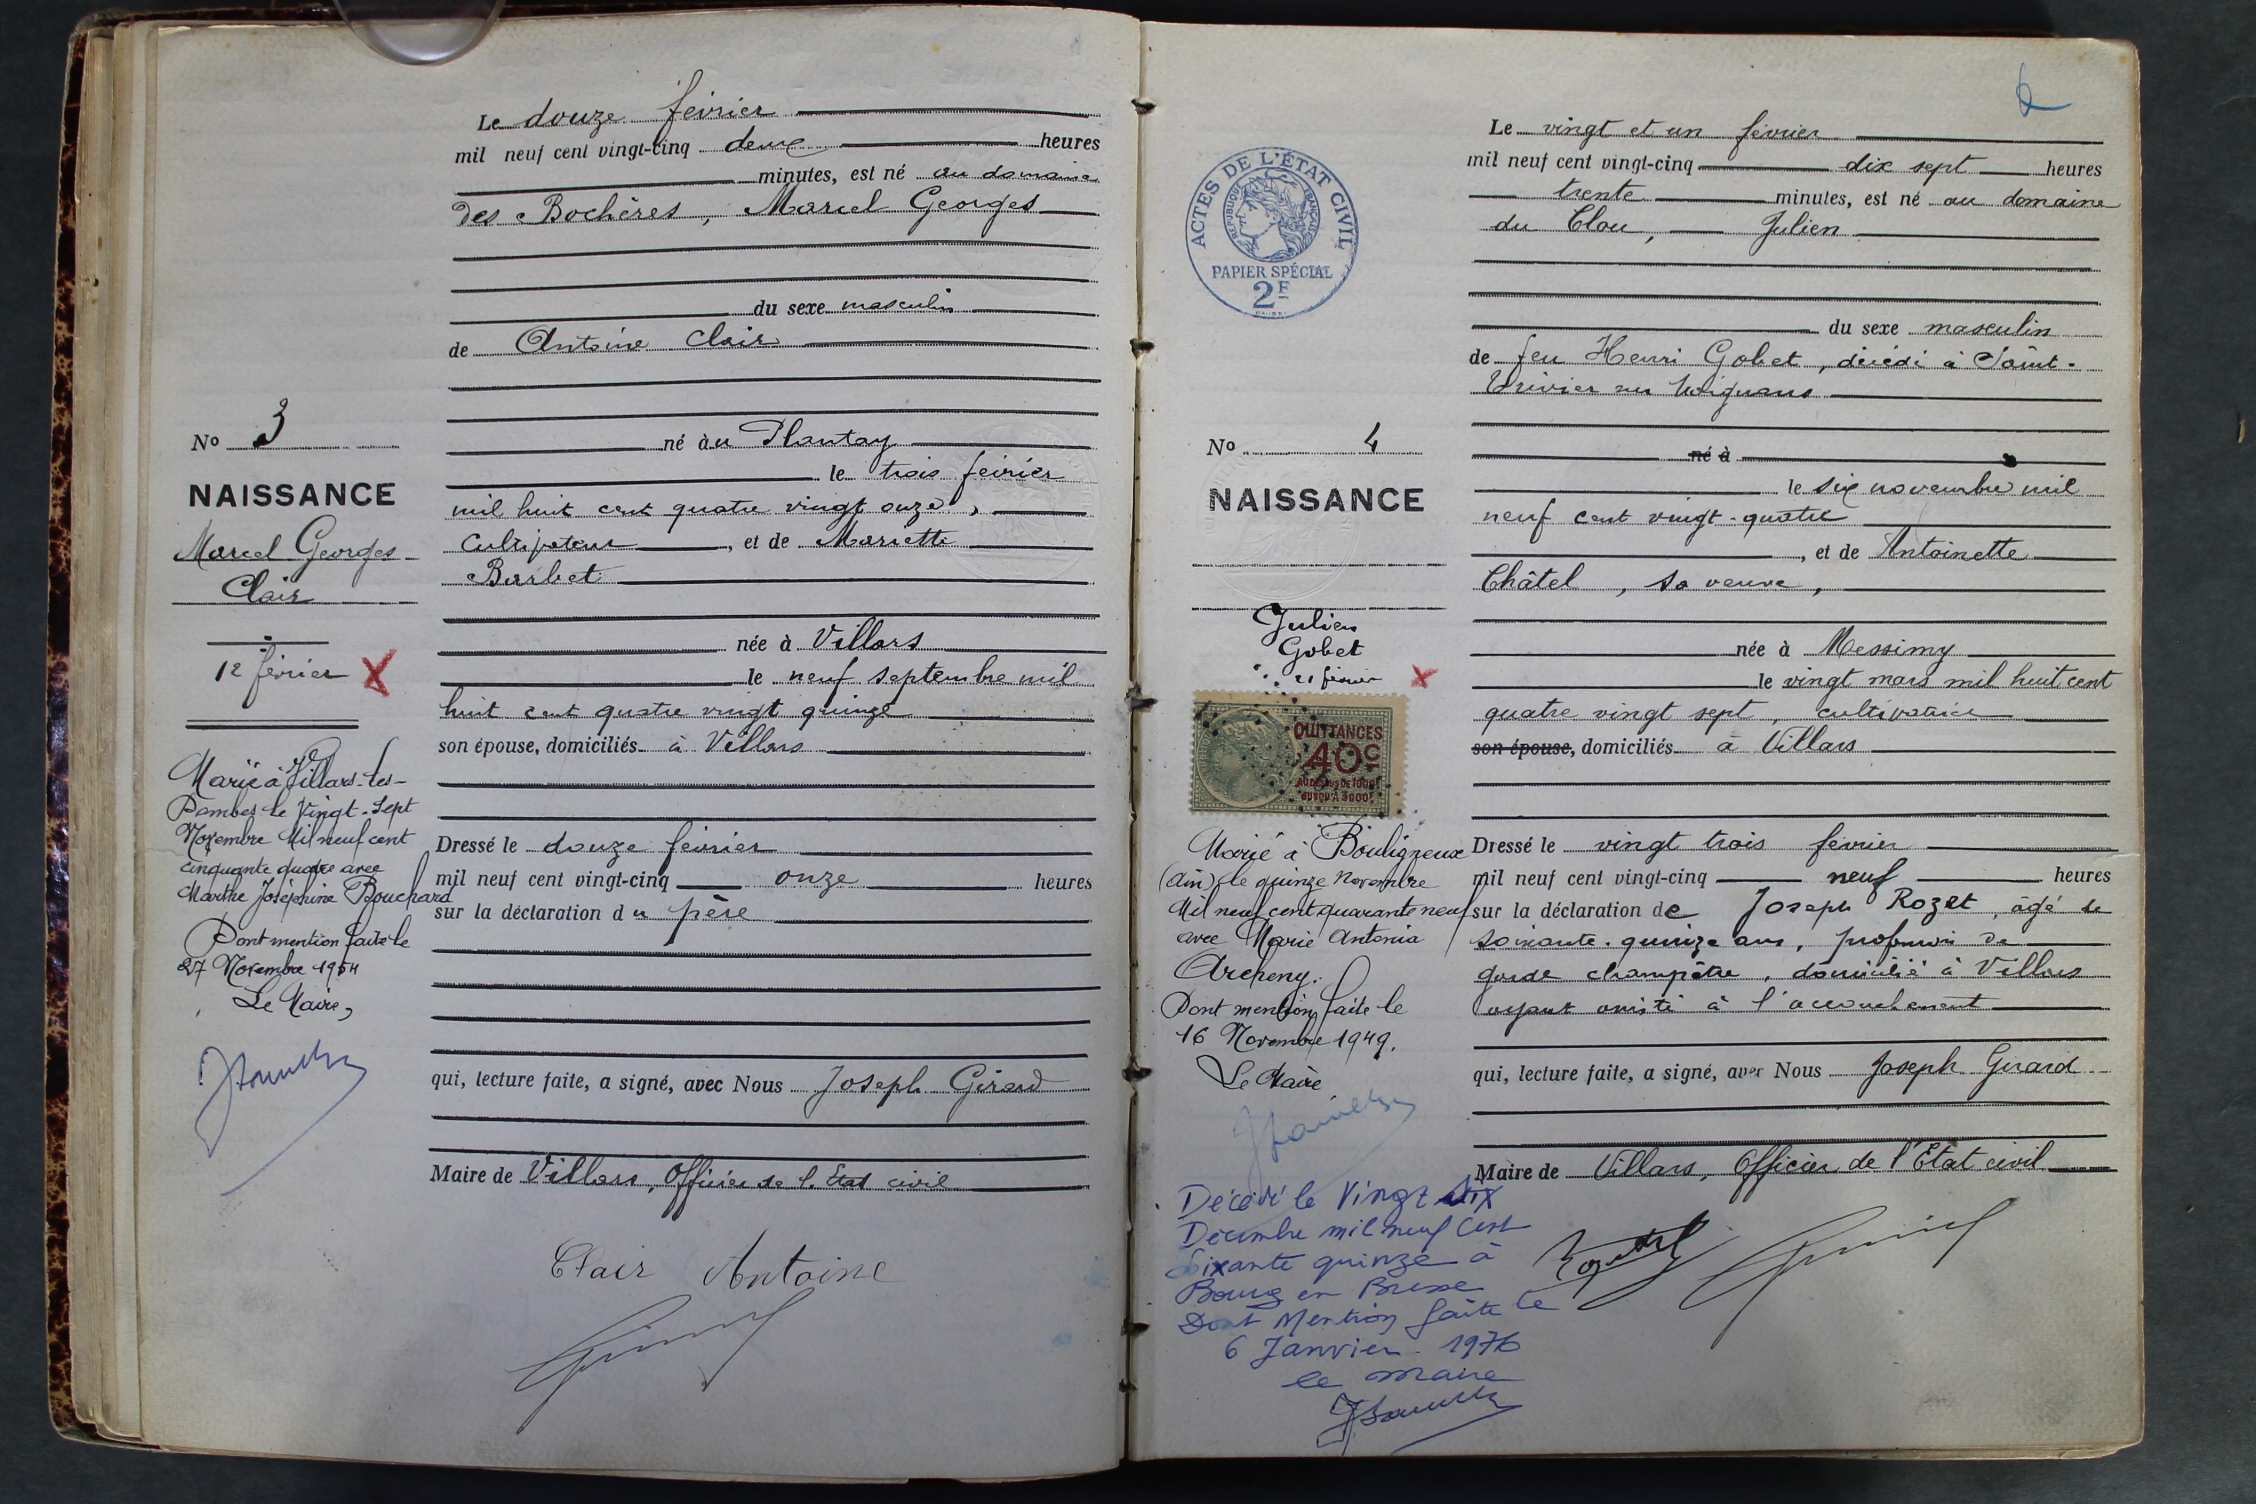 Le douze février
mil neuf cent vingt-cinq deux heures
minutes, est né au domaine
des Bochères, Marcel Georges
du sexe masculin
de Antoine Clair
né à u Plantay
le trois février
mil huit cent quatre vingt onze,
cultivateur, et de Mariette
Barbet
née à Villars
le neuf septembre mil
huit cent quatre vingt quinze
son épouse, domiciliés à Villars
Dressé le douze février
mil neuf cent vingt-cinq onze heures
sur la déclaration du père
qui, lecture faite, a signé, avec Nous Joseph Girard
Maire de Villars, Officier de l'Etat civil
Clair Antoine
No 3
NAISSANCE
Marcel Georges
Clair
12 février X
Marié à Villars-les-
Dombes le Vingt-Sept
Novembre Mil neuf cent
cinquante quatre avec
Marthe Joséphine Bouchard
Dont mention faite le
27 Novembre 1954
Le Maire,
6
ACTES DE L'ÉTAT CIVIL
RÉPUBLIQUE FRANÇAISE
PAPIER SPÉCIAL
2F
Le vingt et un février
mil neuf cent vingt-cinq dix sept heures
trente minutes, est né au domaine
du Clou, Julien
du sexe masculin
de feu Henri Gobet, décédé à Saint-
Trivier sur Moignans
né à
le six novembre mil
neuf cent vingt-quatre
, et de Antoinette
Châtel, sa veuve,
née à Messimy
le vingt mars mil huit cent
quatre vingt sept, cultivatrice
son épouse, domiciliés à Villars
Dressé le vingt trois février
mil neuf cent vingt-cinq neuf heures
sur la déclaration de Joseph Rozet, âgé de
soixante-quinze ans, profession de
garde champêtre, domicilié à Villars
ayant assisté à l'accouchement
qui, lecture faite, a signé, avec Nous Joseph Girard
Maire de Villars, Officier de l'Etat civil
No 4
NAISSANCE
Julien
Gobet
21 février X
QUITTANCES
40c
AU DESSUS DE 1000F
JUSQU'À 3000F
Marié à Bouligneux
(Ain) le quinze Novembre
Mil neuf cent quarante neuf
avec Marie Antonia
Archeny.
Dont mention faite le
16 Novembre 1949.
Le Maire
Décédé le Vingt six
Décembre mil neuf cent
Soixante quinze à
Bourg en Bresse
Dont Mention faite le
6 Janvier 1976
le maire